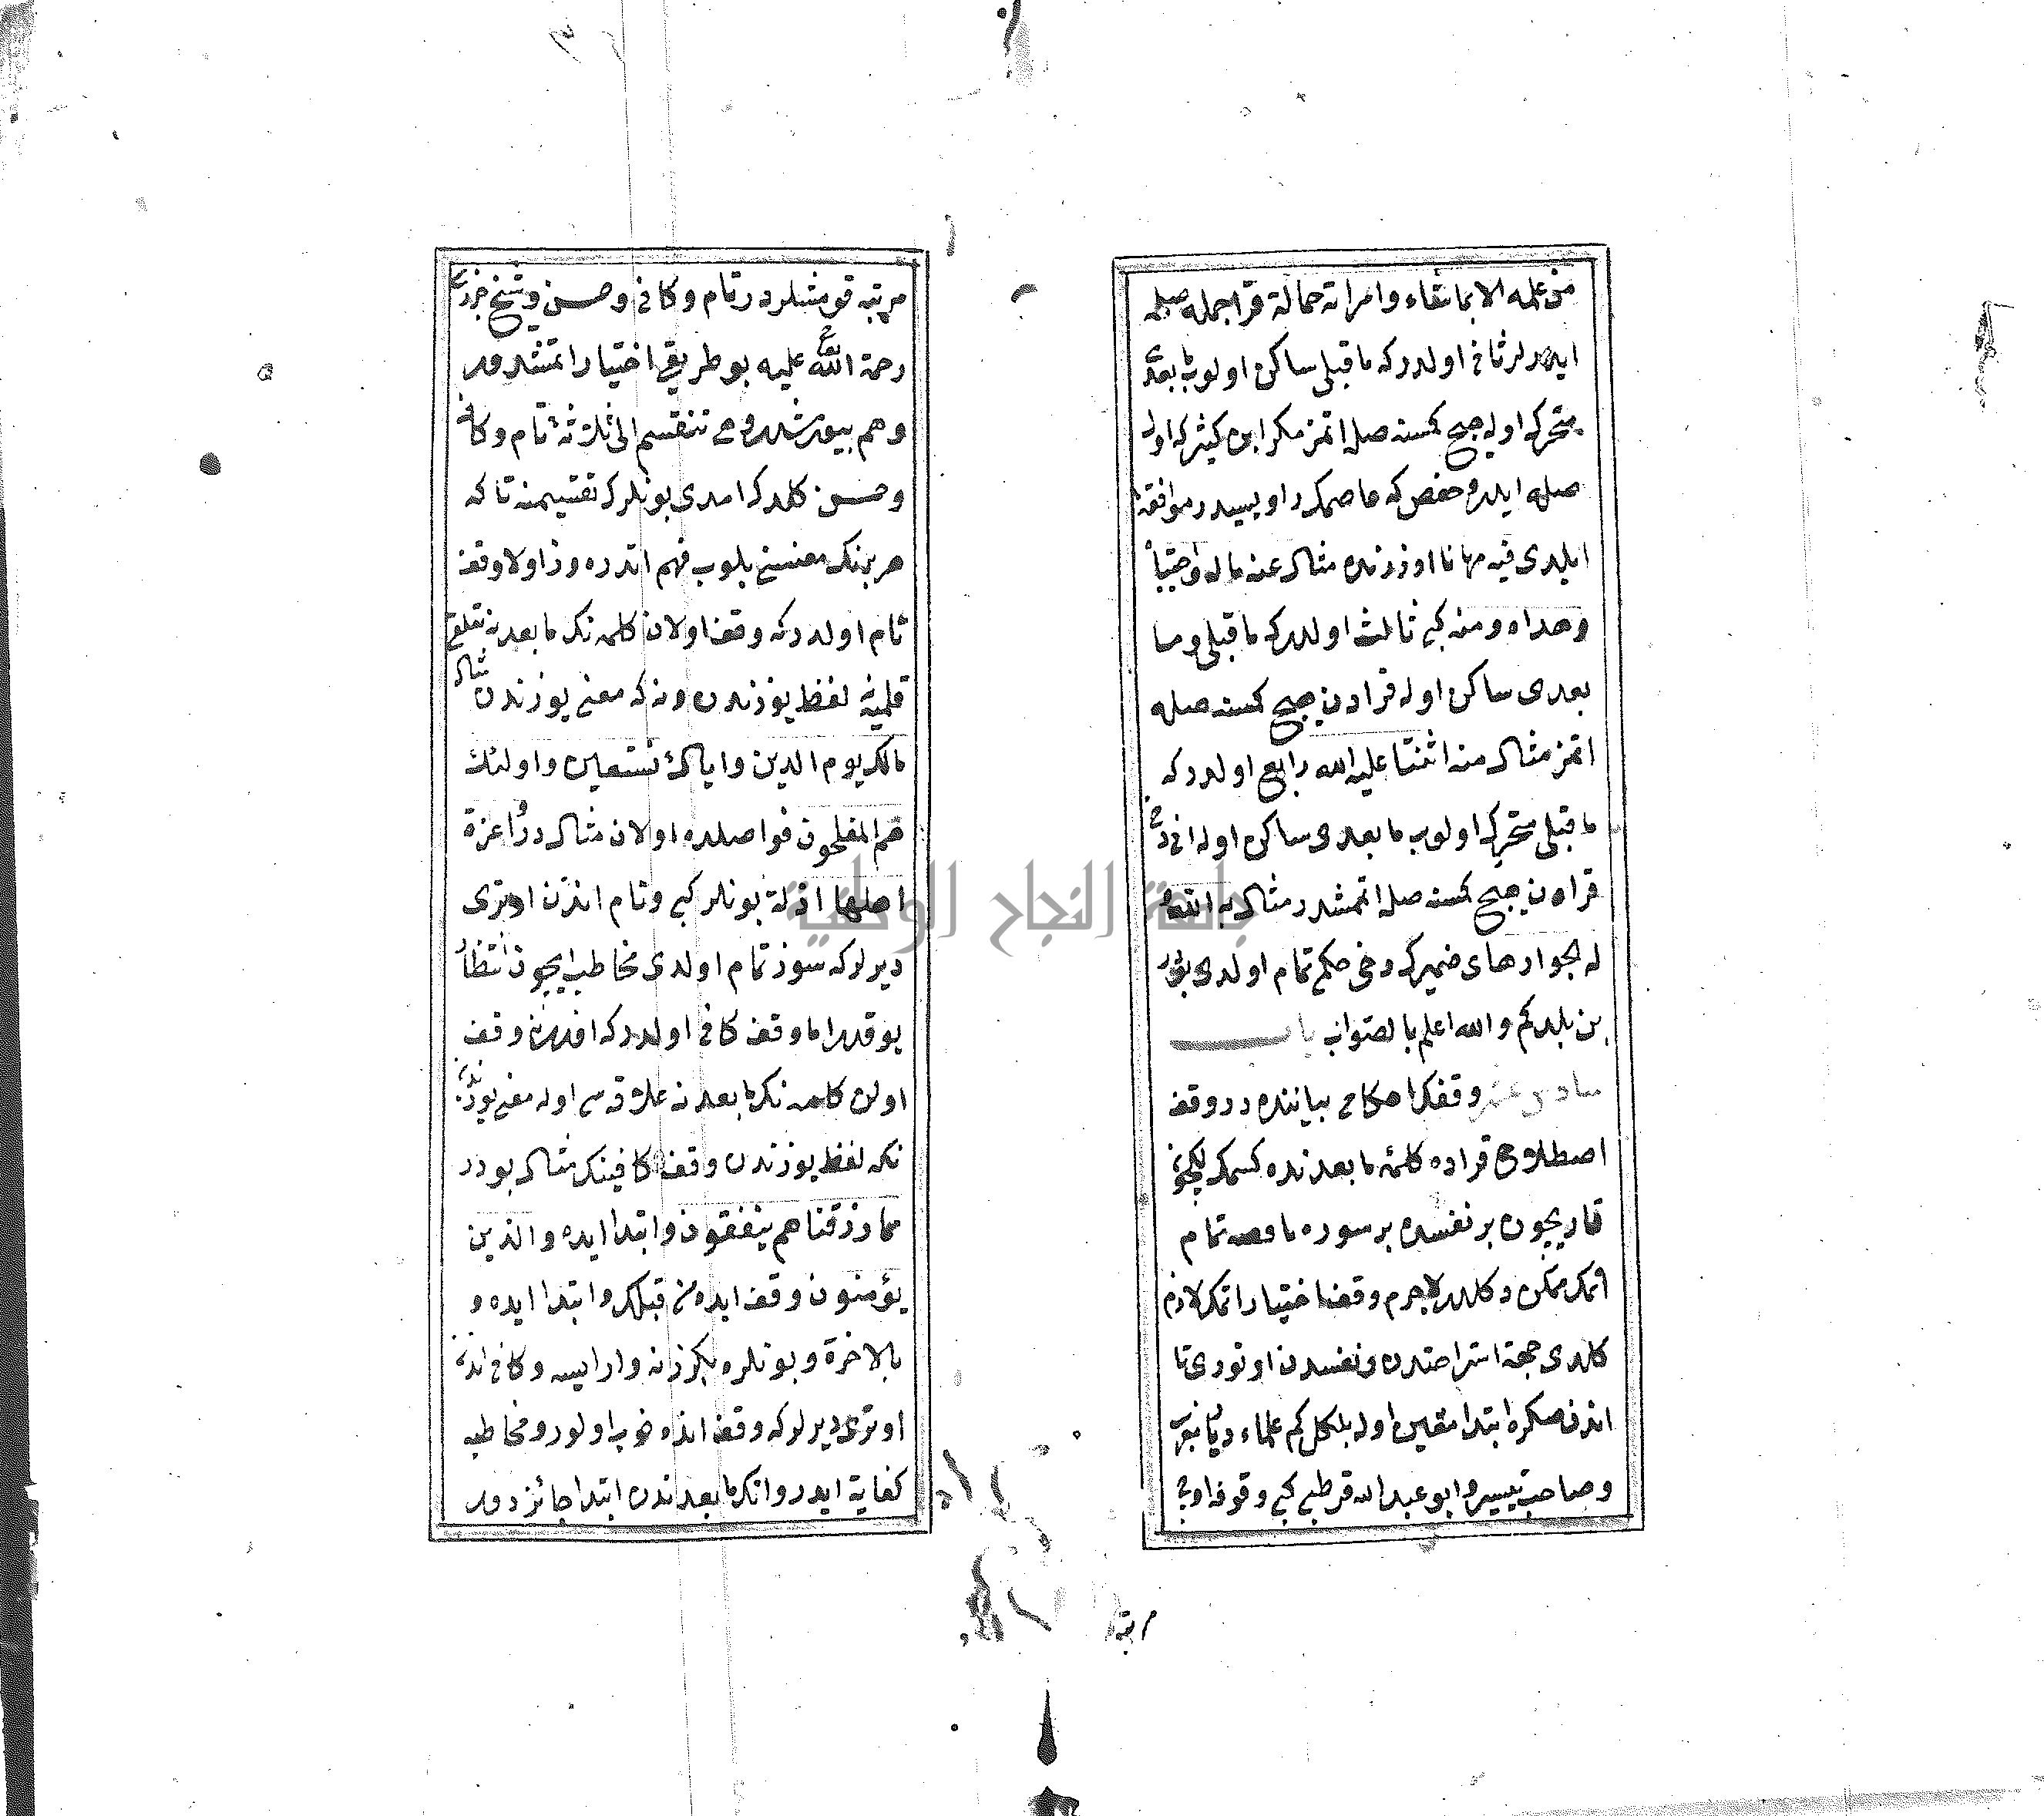 من علمه الا بما شاء وامراته حمالة قرا جمله صله
ايدرلر ثانی اولدركه ما قبلی ساكن اولوب ما بعدی
متحرك اوله هیچ كمسنه صله اتمز مكر ابن كثیر كه اول
صله ایدر و حفص كه عاصمك راویسیدر موافقة
ایلدی فیه مهانا اوزرنده مثالی عنه ماله واجتباه
وهداه ومنه كبی ثالث اولدركه ما قبلی وما
بعدی ساكن اوله قرادن هیچ كمسنه صله
اتمز مثالی منه اثنتا علیه الله رابع اولدركه
ما قبلی متحرك اولوب ما بعدی ساكن اوله انی دخی
قرادن هیچ كمسنه صله اتمشدر مثالی به الله
له الجوار های ضمیرك دخی حكمی تمام اولدی بودر
بن بلدكم والله اعلم بالصواب باب
سادس عشر وقفك احكامی بیاننده در وقف
اصطلاح قراده كلمه ما بعدندن كسمك
قاریچون بر نفسده بر سوره یا قصه تمام
اتمك ممكن دكلدر لاجرم وقف اختیار اتمك لازم
كلدی جهة استراحتدن و نفسدن اوتوری تا
اندن صكره ابتدا متعین اوله بلكل كم علماء
وصاحب تیسیر وابو عبد الله قرطبی كبی وقوف اوچ
مرتبه
مرتبه قومشلردر تام وكافی وحسن وشیخ جزری
رحمة الله علیه بو طریقی اختیار اتمشدر
وهم بیورمشدر وهی تنقسم الی ثلاثة تام وكاف
وحسن كلدك امدی بونلرك تقسیمنه تا كه
هر برینك معنسنی بلوب فهم اتدره وز اولا وقف
تام اولدركه وقف اولان كلمه نك ما بعدینه تعلق
قلمیه لفظ یوزندن ونه كه معنی یوزندن مثالی
مالك یوم الدین وایاك نستعین واولئك
هم المفلحون فواصلده اولان مثالی در اعزة
اهلها اذلة بونلر كبی وتام اندن اوتری
دیرلر كه سوز تمام اولدی مخاطب ایچون انتظار
یوقدر اما وقف كافی اولدركه وقف
اولن كلمه نك ما بعدینه علاقه سی اوله معنی یوزندن
نكه لفظ یوزندن وقف كافینك مثالی بودر
مما رزقناهم ینفقون وابتدا ایده والذین
یؤمنون وقف ایده من قبلك وابتدا ایده و
بالاخرة و بونلره بكزر نه وارایسه وكافی اندن
اوتری دیرلر كه وقف انده خوب اولور و مخاطبه
كفایة ایدر وانك ما بعدندن ابتدا جائزدر
جامعة النجاح الوطنية